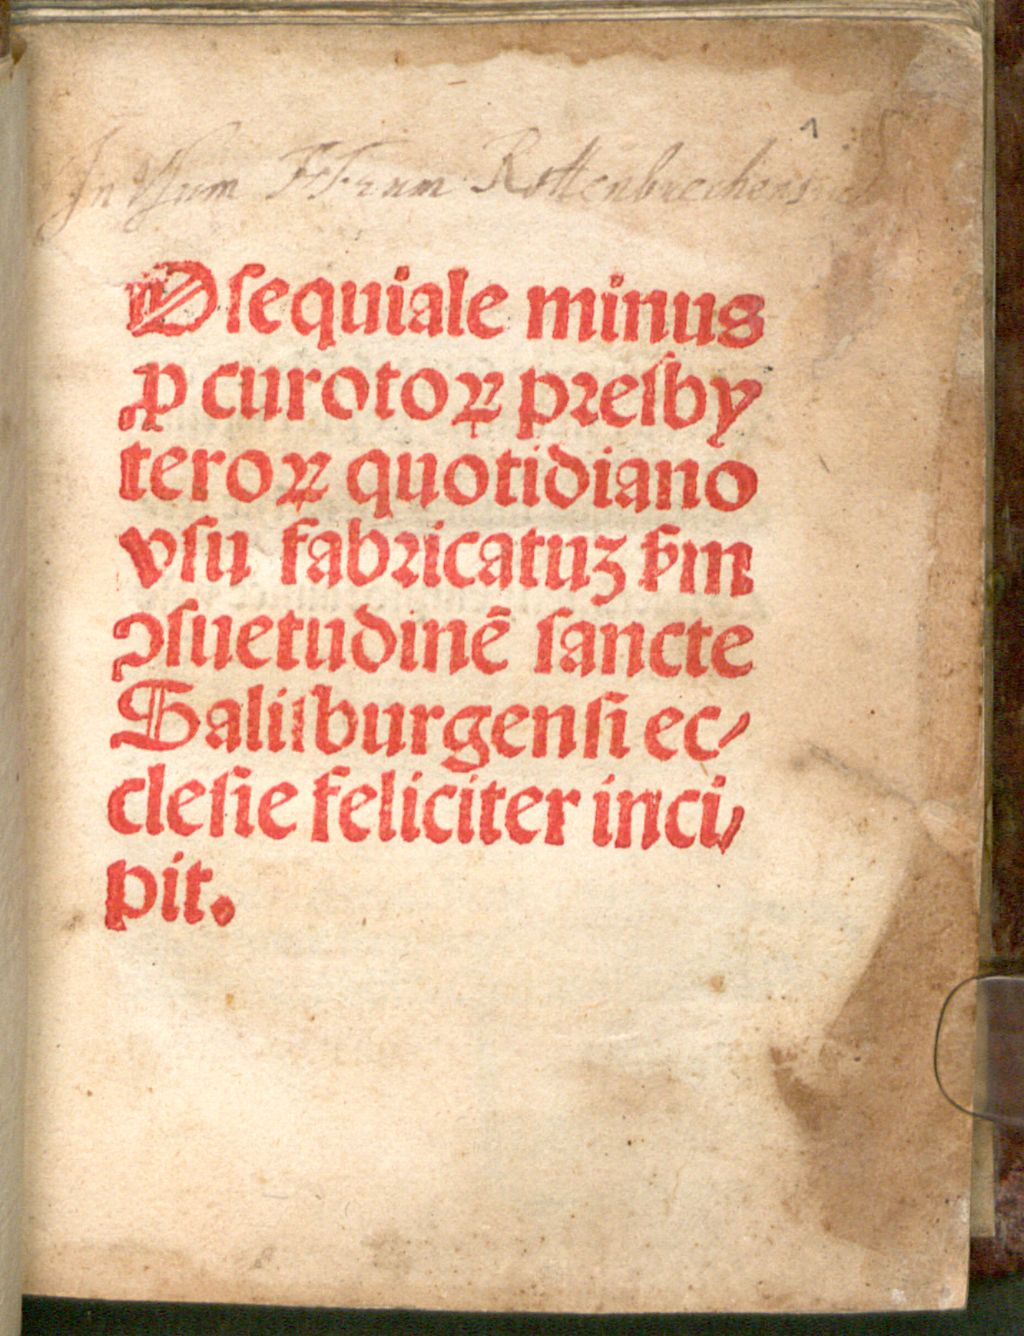 In Vsum FFrum Rottenbuechens:
Obsequiale minus
ꝓ curotoꝝ presby
teroꝝ quotidiano
vsu fabricatuꝫ ẜm
ↄsuetudinē sancte
Salisburgensi ec⸗
clesie feliciter inci⸗
pit.